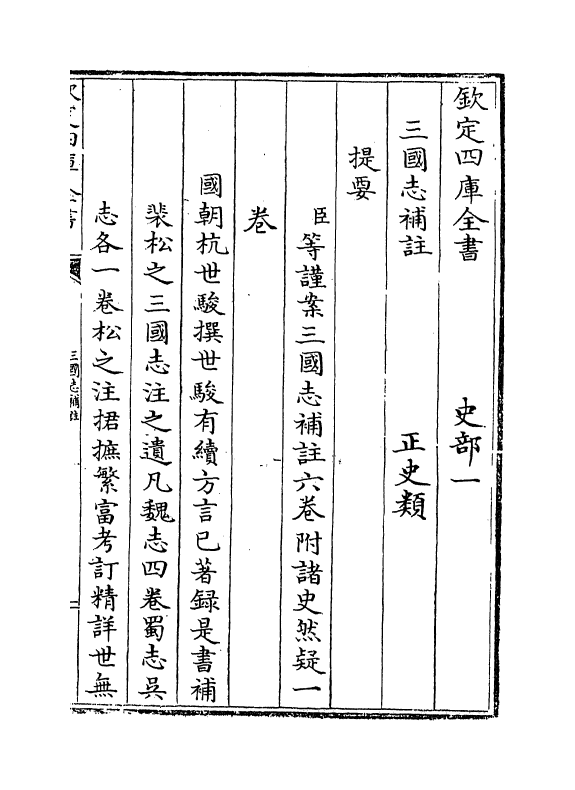 欽定四庫全書 史部一
三國志補註 正史類
提要
臣等謹案三國志補註六卷附諸史然疑一
卷
國朝杭世駿撰世駿有續方言已著録是書補
裴松之三國志注之遺凡魏志四卷蜀志吳
志各一卷松之注捃摭繁富考訂精詳世無
欽定四庫全書 三國志補註